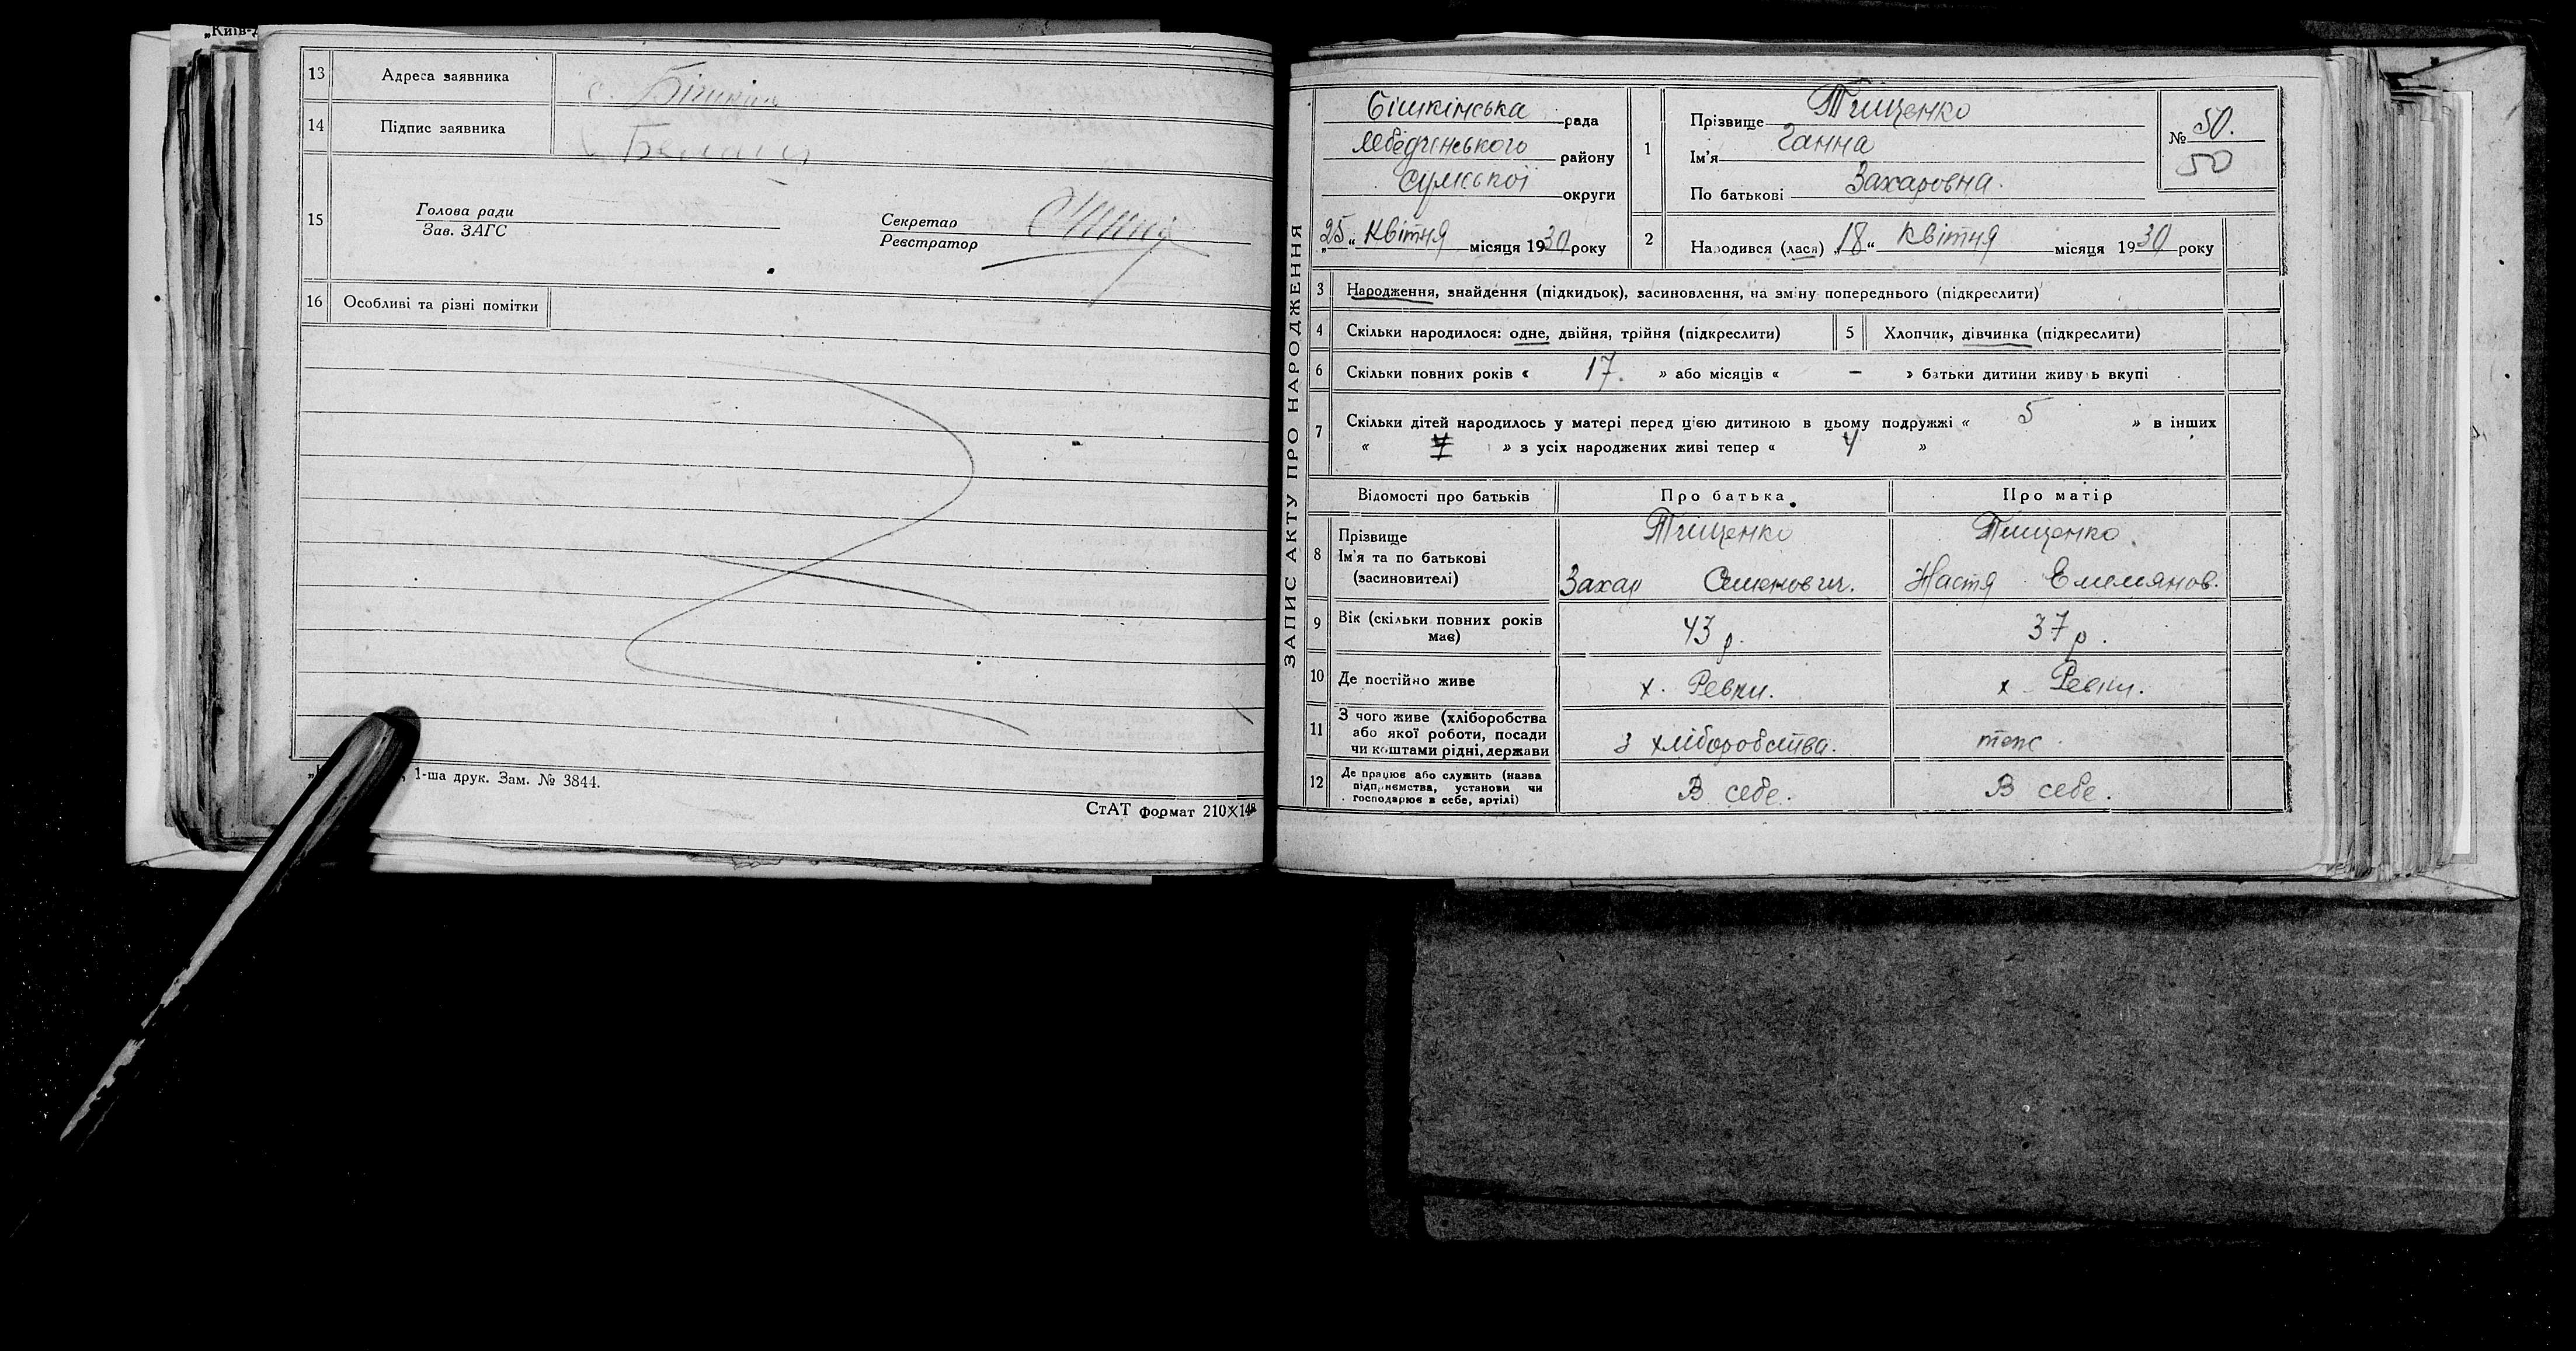 „Київ-Д
13 Адреса заявника с. Бішкінь
14 Підпис заявника
15 Голова ради
Зав. ЗАГС
Секретар
Реєстратор
16 Особливі та різні помітки
1-ша друк. Зам. № 3844.
СтАТ формат 210×148
ЗАПИС АКТУ ПРО НАРОДЖЕННЯ
Бішкінська рада
Лебединського району
Сумської округи
„25“ Квітня місяця 1930 року
1 Прізвище Тищенко
Ім'я Ганна
По батькові Захаровна.
№ 50.
50
2 Народився (лася) „18“ Квітня місяця 1930 року
3 Народження, знайдення (підкидьок), засиновлення, на зміну попереднього (підкреслити)
4 Скільки народилося: одне, двійня, трійня (підкреслити) 5 Хлопчик, дівчинка (підкреслити)
6 Скільки повних років « 17. » або місяців « – » батьки дитини живуть вкупі
7 Скільки дітей народилось у матері перед цією дитиною в цьому подружжі « 5 » в інших
« » з усіх народжених живі тепер « 4 »
Відомості про батьків Про батька Про матір
8 Прізвище Тищенко Тищенко
Ім'я та по батькові
(засиновителі) Захар Семенович. Настя Емелянов.
9 Вік (скільки повних років має) 43 р. 37 р.
10 Де постійно живе х. Ревки. х Ревки.
11 З чого живе (хліборобства
або якої роботи, посади
чи коштами рідні, держави з хліборобства. теж.
12 Де працює або служить (назва
підприємства, установи чи
господарює в себе, артілі) В себе. В себе.